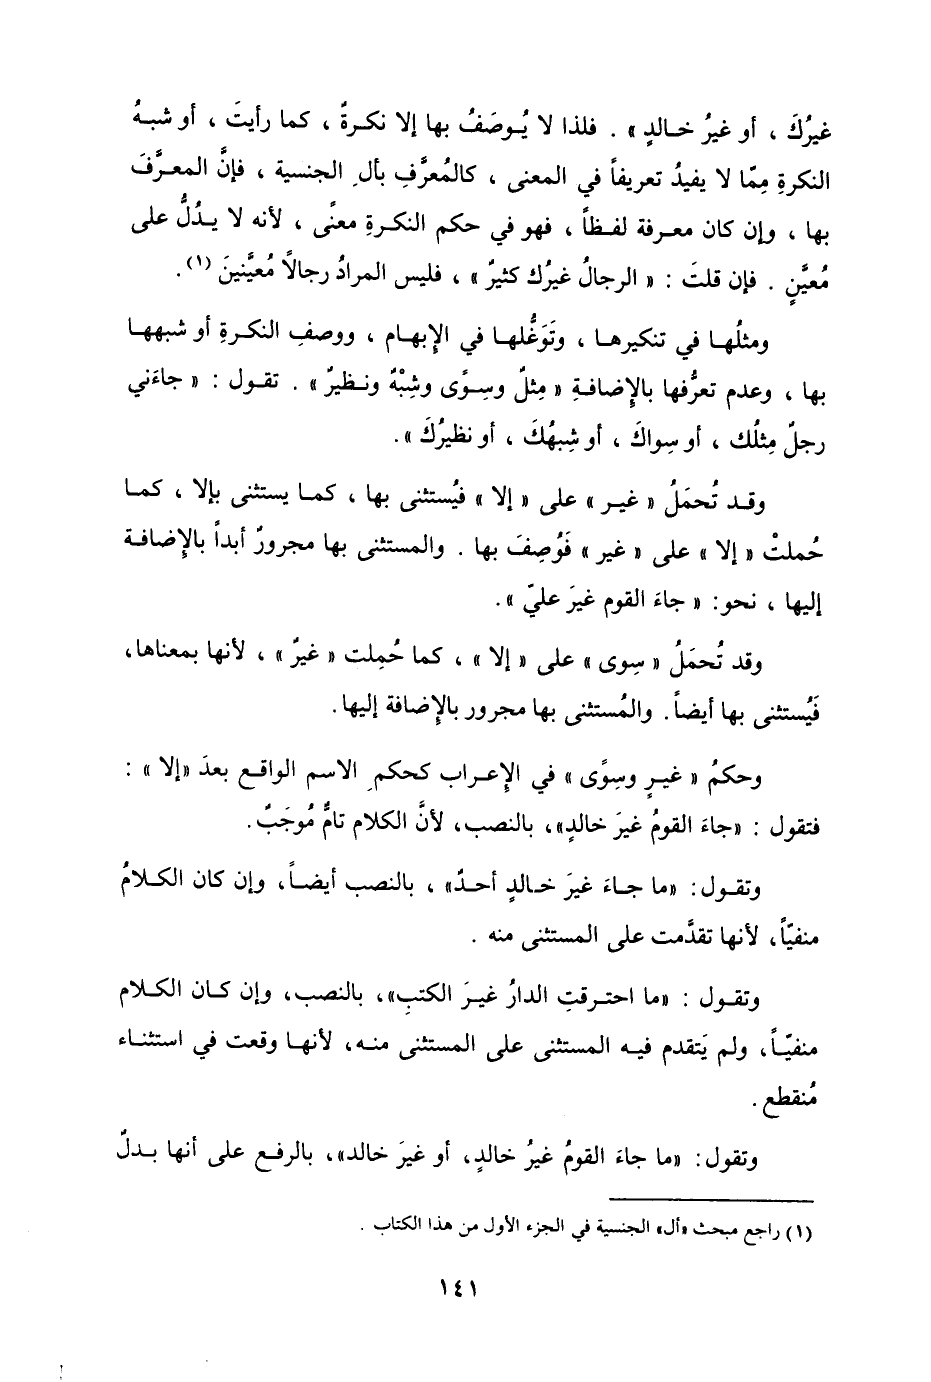 غيرُكَ ، أو غيرُ خـالدٍ » . فلذا لا يُـوصَفُ بها إلا نكـرةٌ ، كما رأيتَ ، أو شبـهُ
النكرةِ مِمّا لا يفيدُ تعريفاً في المعنى ، كالمُعرَّفِ بألِ الجنسية ، فإنَّ المعـرَّفَ
بها ، وإن كان معـرفة لفـظاً ، فهو في حكم النكـرةِ معنًى ، لأنه لا يـدُلُّ على
مُعيَّنٍ . فإن قلتَ : « الرجالُ غيرُك كثيرٌ » ، فليس المرادُ رجالاً مُعيَّنينَ (١) .
ومثلُهـا في تنكيرهـا ، وتَوَغُّلهـا في الإبهـام ، ووصفِ النكـرةِ أو شبههـا
بها ، وعدم تعرُّفها بالإضافـةِ « مِثلٌ وسِـوًى وشِبْهٌ ونـظيرٌ » . تقـول : « جاءَني
رجلٌ مِثلُك ، أو سِواكَ ، أو شِبهُكَ ، أو نظيرُكَ » .
وقـد تُحمَلُ « غيـر » على « إلا » فيُستثنى بها ، كمـا يستثنى بإلا ، كمـا
حُملتْ « إلا » على « غير » فَوُصِفَ بها . والمستثنى بها مجرورٌ أبداً بالإضافـة
إليها ، نحو: « جاءَ القوم غيرَ عليّ » .
وقد تُحمَلُ « سِوى » على « إلا » ، كما حُمِلت « غيرٌ » ، لأنها بمعناها،
فَيُستثنى بها أيضاً. والمُستثنى بها مجرور بالإضافة إليها.
وحكمُ « غيـرٍ وسِوًى » في الإعـراب كحكمِ الاسم الواقع بعدَ «إلا » :
فتقول : «جاءَ القومُ غيرَ خالدٍ»، بالنصب، لأنَّ الكلام تامٌّ مُوجَبٌ.
وتقـول: «ما جـاءَ غيرَ خـالدٍ أحـدٌ» ، بالنصب أيضـاً، وإن كان الكـلامُ
منفيّاً، لأنها تقدَّمت على المستثنى منه .
وتقـول : «ما احتـرقتِ الدارُ غيـرَ الكتبِ»، بالنصب، وإن كـان الكـلام
منفيّـاً، ولم يَتقدم فيـه المستثنى على المستثنى منـه، لأنهـا وقعت في استثنـاء
مُنقطع .
وتقول: «ما جاءَ القومُ غيرُ خالدٍ، أو غيرَ خالد»، بالرفـع على أنها بـدلٌ
(١) راجع مبحث «أل» الجنسية في الجزء الأول من هذا الكتاب .
١٤١